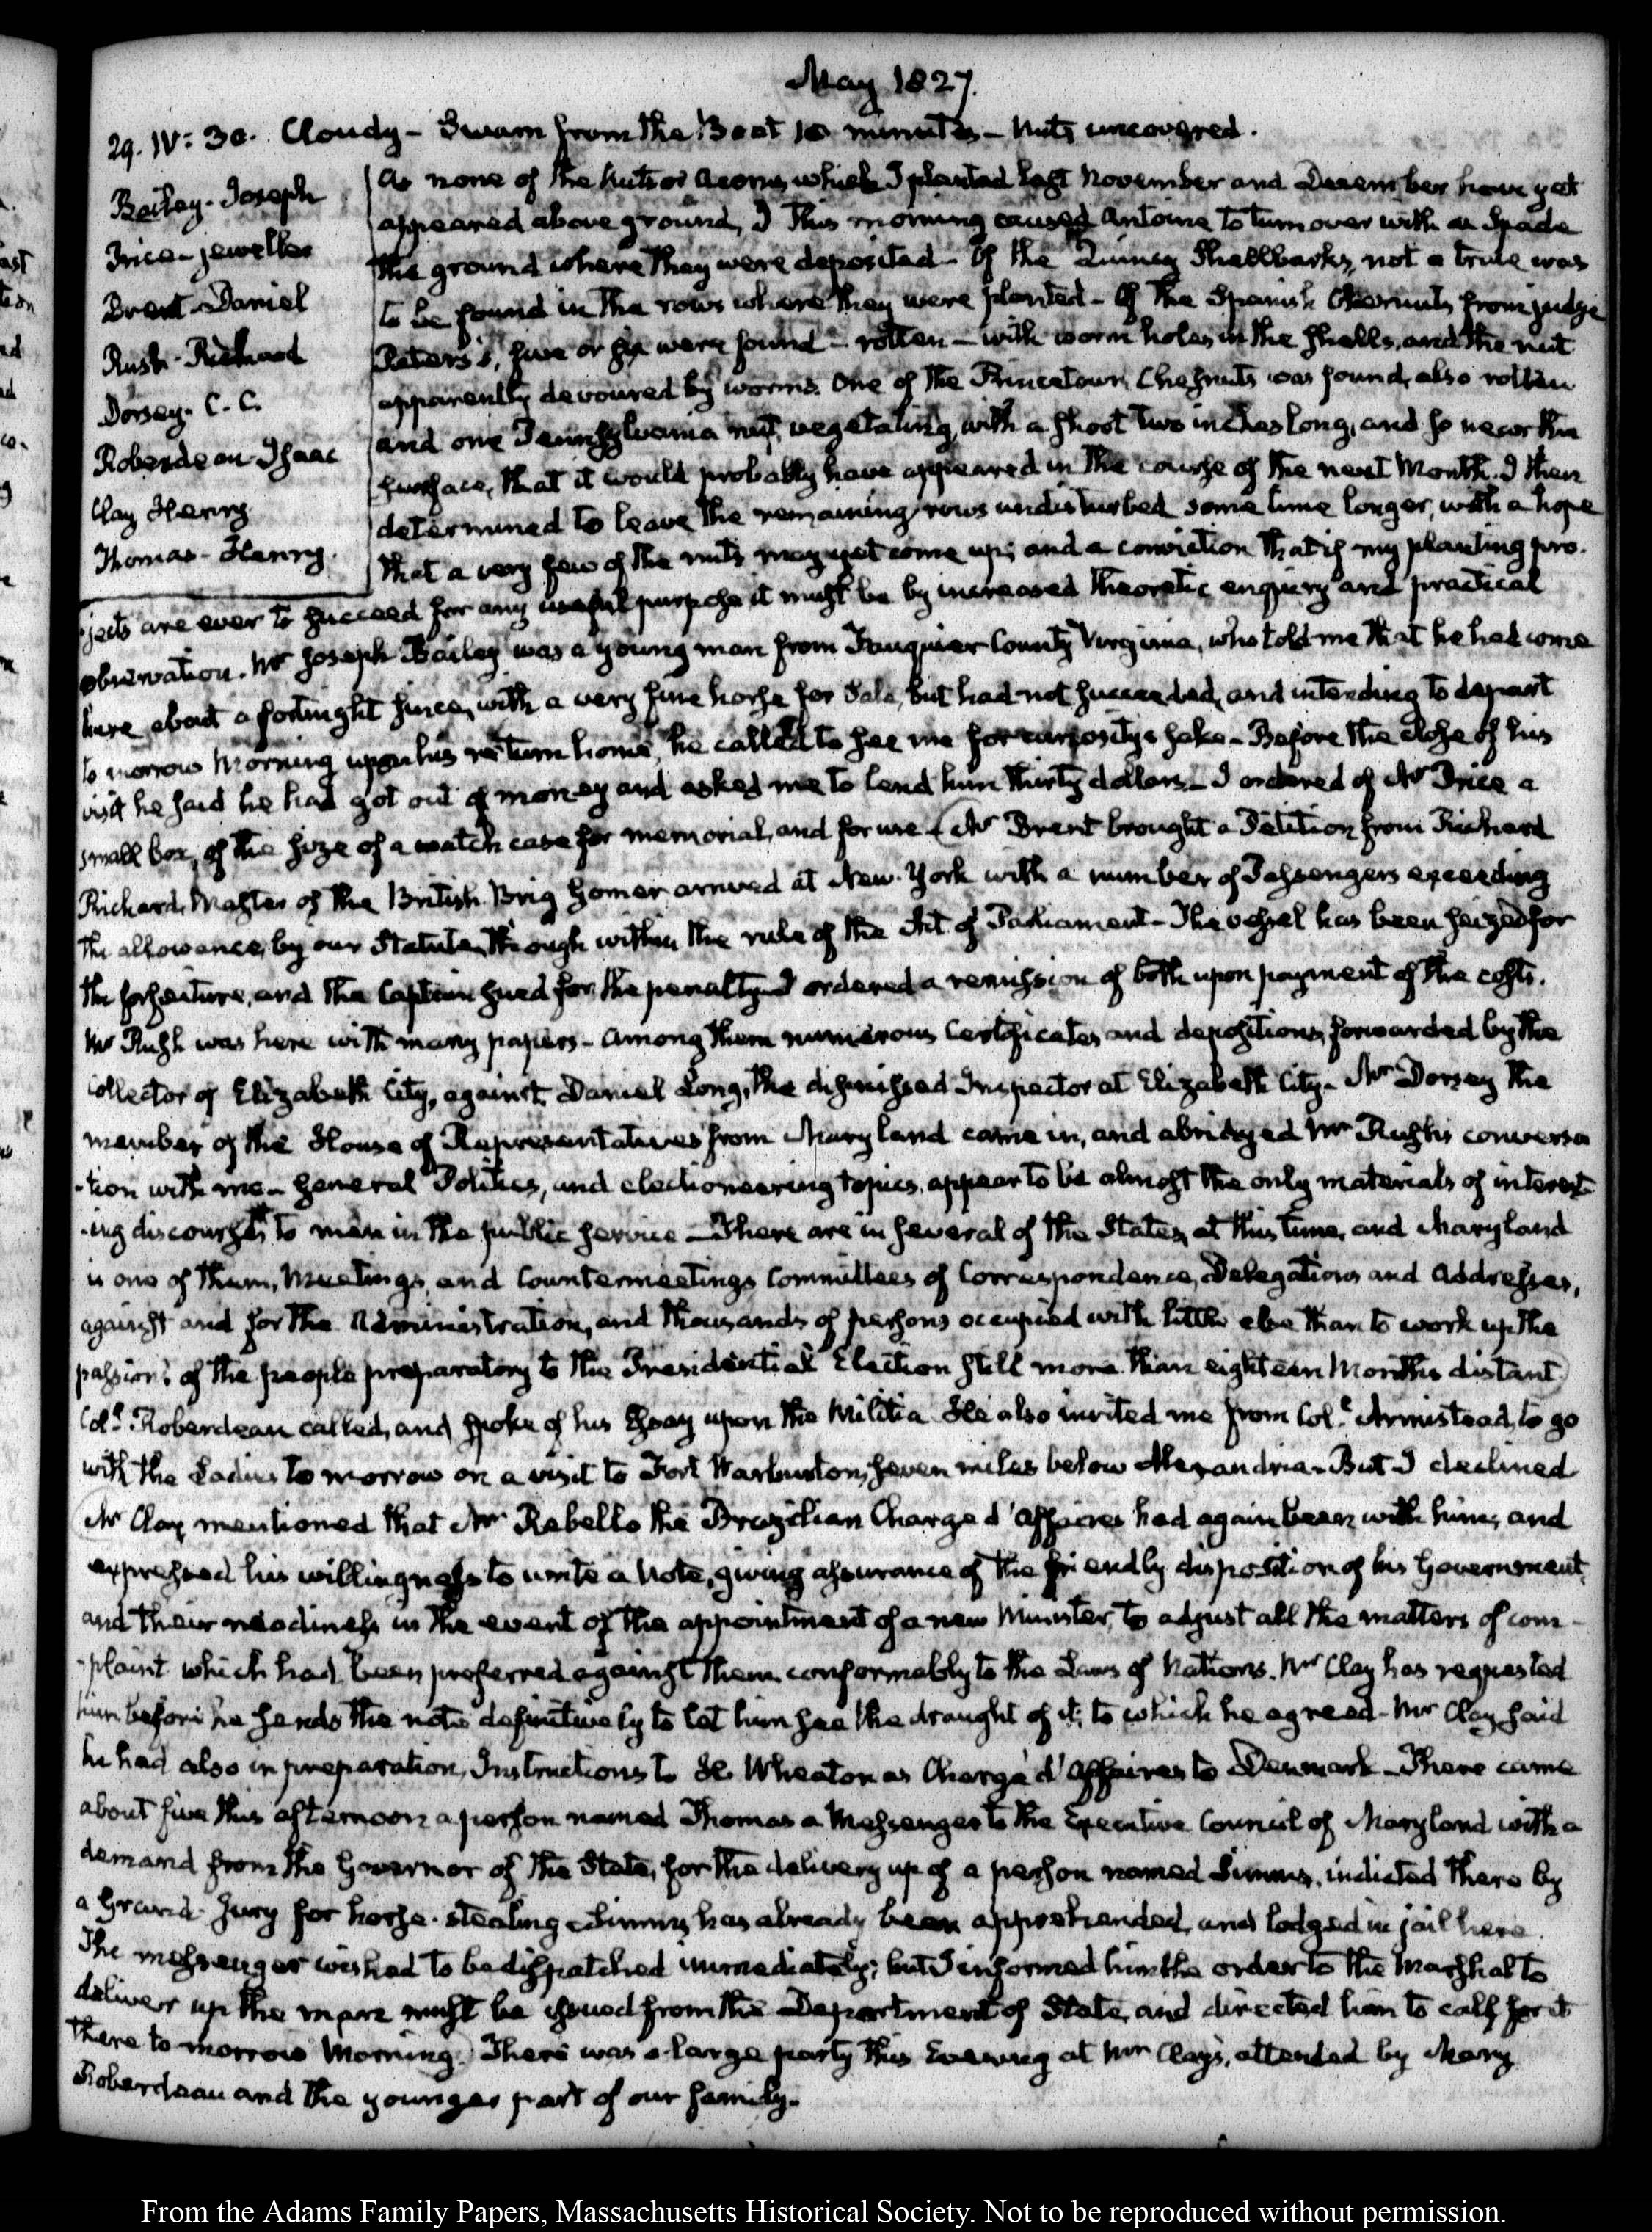 May 1827.
29. IV: 30. Cloudy - Swam from the Boat 10 minutes - Nuts uncovered.
Bailey - Joseph
Price - jeweller
Brent - Daniel
Rush - Richard
Dorsey - C. C.
Roberdeau Isaac
Clay Henry
Thomas - Henry.
As none of the Nuts or Acorns which I planted last November and December have yet
appeared above ground, I this morning caused Antoine to turn over with a Spade
the ground where they were deposited - Of the Quincy Shellbarks, not a trace was
to be found in the rows where they were planted - Of the Spanish Chesnuts from judge
Peters's, five or six were found - rotten - with worm holes in the shells, and the nut
apparently devoured by worms. One of the Princetown Chesnuts was found, also rotten
and one Pennsylvania nut, vegetating, with a shoot two inches long, and so near the
surface, that it would probably have appeared in the course of the next Month. I then
determined to leave the remaining rows undisturbed some time longer, with a hope
that a very few of the nuts may yet come up; and a conviction that if my planting pro-
-jects are ever to succeed for any useful purpose it must be by increased theoretic enquiry and practical
observation. Mr Joseph Bailey was a young man from Fauquier County Virginia, who told me that he had come
here about a fortnight since, with a very fine horse for Sale, but had not succeeded, and intending to depart
to morrow Morning upon his return home, he called to see me for curiosity's sake - Before the close of his
visit he said he had got out of money and asked me to lend him thirty dollars - I ordered of Mr Price a
small box, of the size of a watch case for memorial, and for use (Mr Brent brought a Petition from Richard
Richard, Master of the British Brig Homer arrived at New-York with a number of Passengers exceeding
the allowance, by our Statute, though within the rule of the Act of Parliament - The vessel has been seized for
the forfeiture, and the Captain sued for the penalty - I ordered a remission of both upon payment of the costs.
Mr Rush was here with many papers - Among them numerous Certificates and depositions, forwarded by the
Collector of Elizabeth City, against Daniel Long, the dismissed Inspector at Elizabeth City - Mr Dorsey the
member of the House of Representatives from Maryland came in, and abridged Mr Rush's conversa
-tion with me - General Politics, and electioneering topics, appear to be almost the only materials of interest-
-ing discourses to men in the public service - There are in several of the States, at this time, and Maryland
is one of them, Meetings, and Countermeetings Committees of Correspondence, Delegations and Addresses,
against and for the Administration, and thousands of persons occupied with little else than to work up the
passions of the people preparatory to the Presidential Election still more than eighteen Months distant)
Coll. Roberdeau called, and spoke of his Essay upon the Militia. He also invited me from Coll. Armistead, to go
with the Ladies to morrow on a visit to Fort Warburton, seven miles below Alexandria - But I declined
(Mr Clay mentioned that Mr Rebello the Brazilian Charge d'Affaires had again been with him, and
expressed his willingness to write a Note, giving assurance of the friendly disposition of his Government,
and their readiness in the event of the appointment of a new Minister, to adjust all the matters of com-
-plaint which had been preferred against them conformably to the Laws of Nations. Mr Clay has requested
him before he sends the note definitively to let him see the draught of it; to which he agreed - Mr Clay said
he had also in preparation, Instructions to H. Wheaton as Chargé d'Affaires to Denmark - There came
about five this afternoon a person named Thomas a Messenger to the Executive Council of Maryland with a
demand from the Governor of the State, for the delivery up of a person named Simms, indicted there by
a Grand-Jury for horse-stealing - Simms has already been apprehended, and lodged in jail here.
The messenger wished to be dispatched immediately; but I informed him the order to the Marshal to
deliver up the man must be issued from the Department of State, and directed him to call for it
there to-morrow Morning.) There was a large party this Evening at Mr Clay's, attended by Mary
Roberdeau and the younger part of our family.
From the Adams Family Papers, Massachusetts Historical Society. Not to be reproduced without permission.